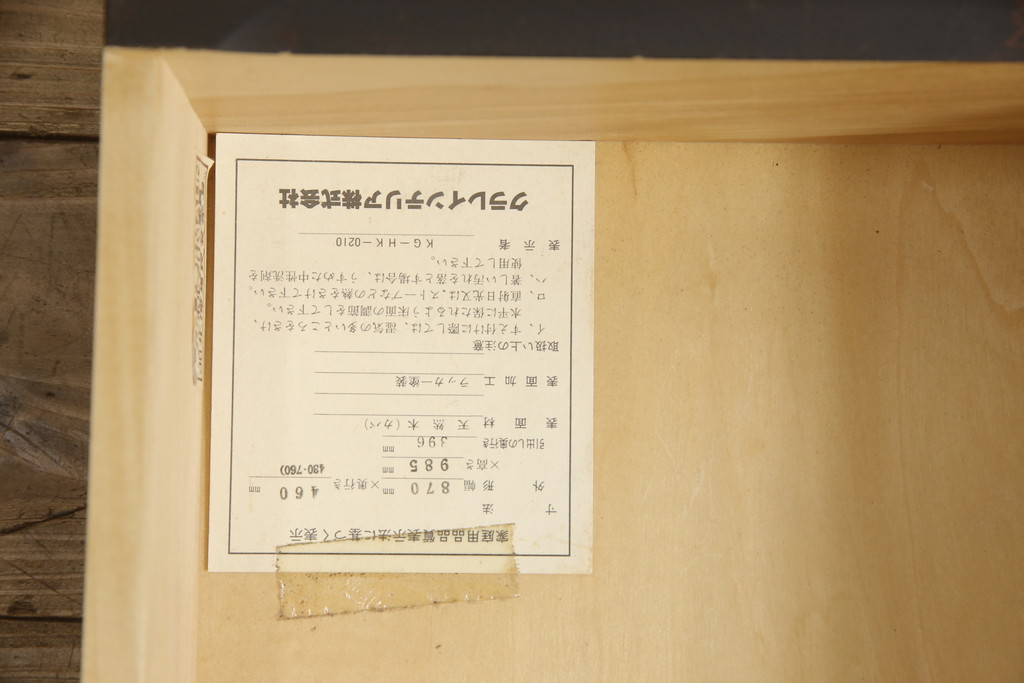 家庭用品品質表示法に基づく表示
寸 法
外 形 幅 870 mm ×奥行き 460 mm
×高さ 985 mm 430·760)
引出しの奥行き 396 mm
表 面 材 天 然 木 (カバ)
表 面 加 工 ラッカー塗装
取扱い上の注意
イ、すえ付けに際しては、湿気の多いところをさけ、
水平に保たれるよう床面の調節をして下さい。
ロ、直射日光又は、ストーブなどの熱をさけて下さい。
ハ、著しい汚れを落とす場合は、うすめた中性洗剤を
使用して下さい。
表 示 者 KG-HK-0210
クラレインテリア株式会社